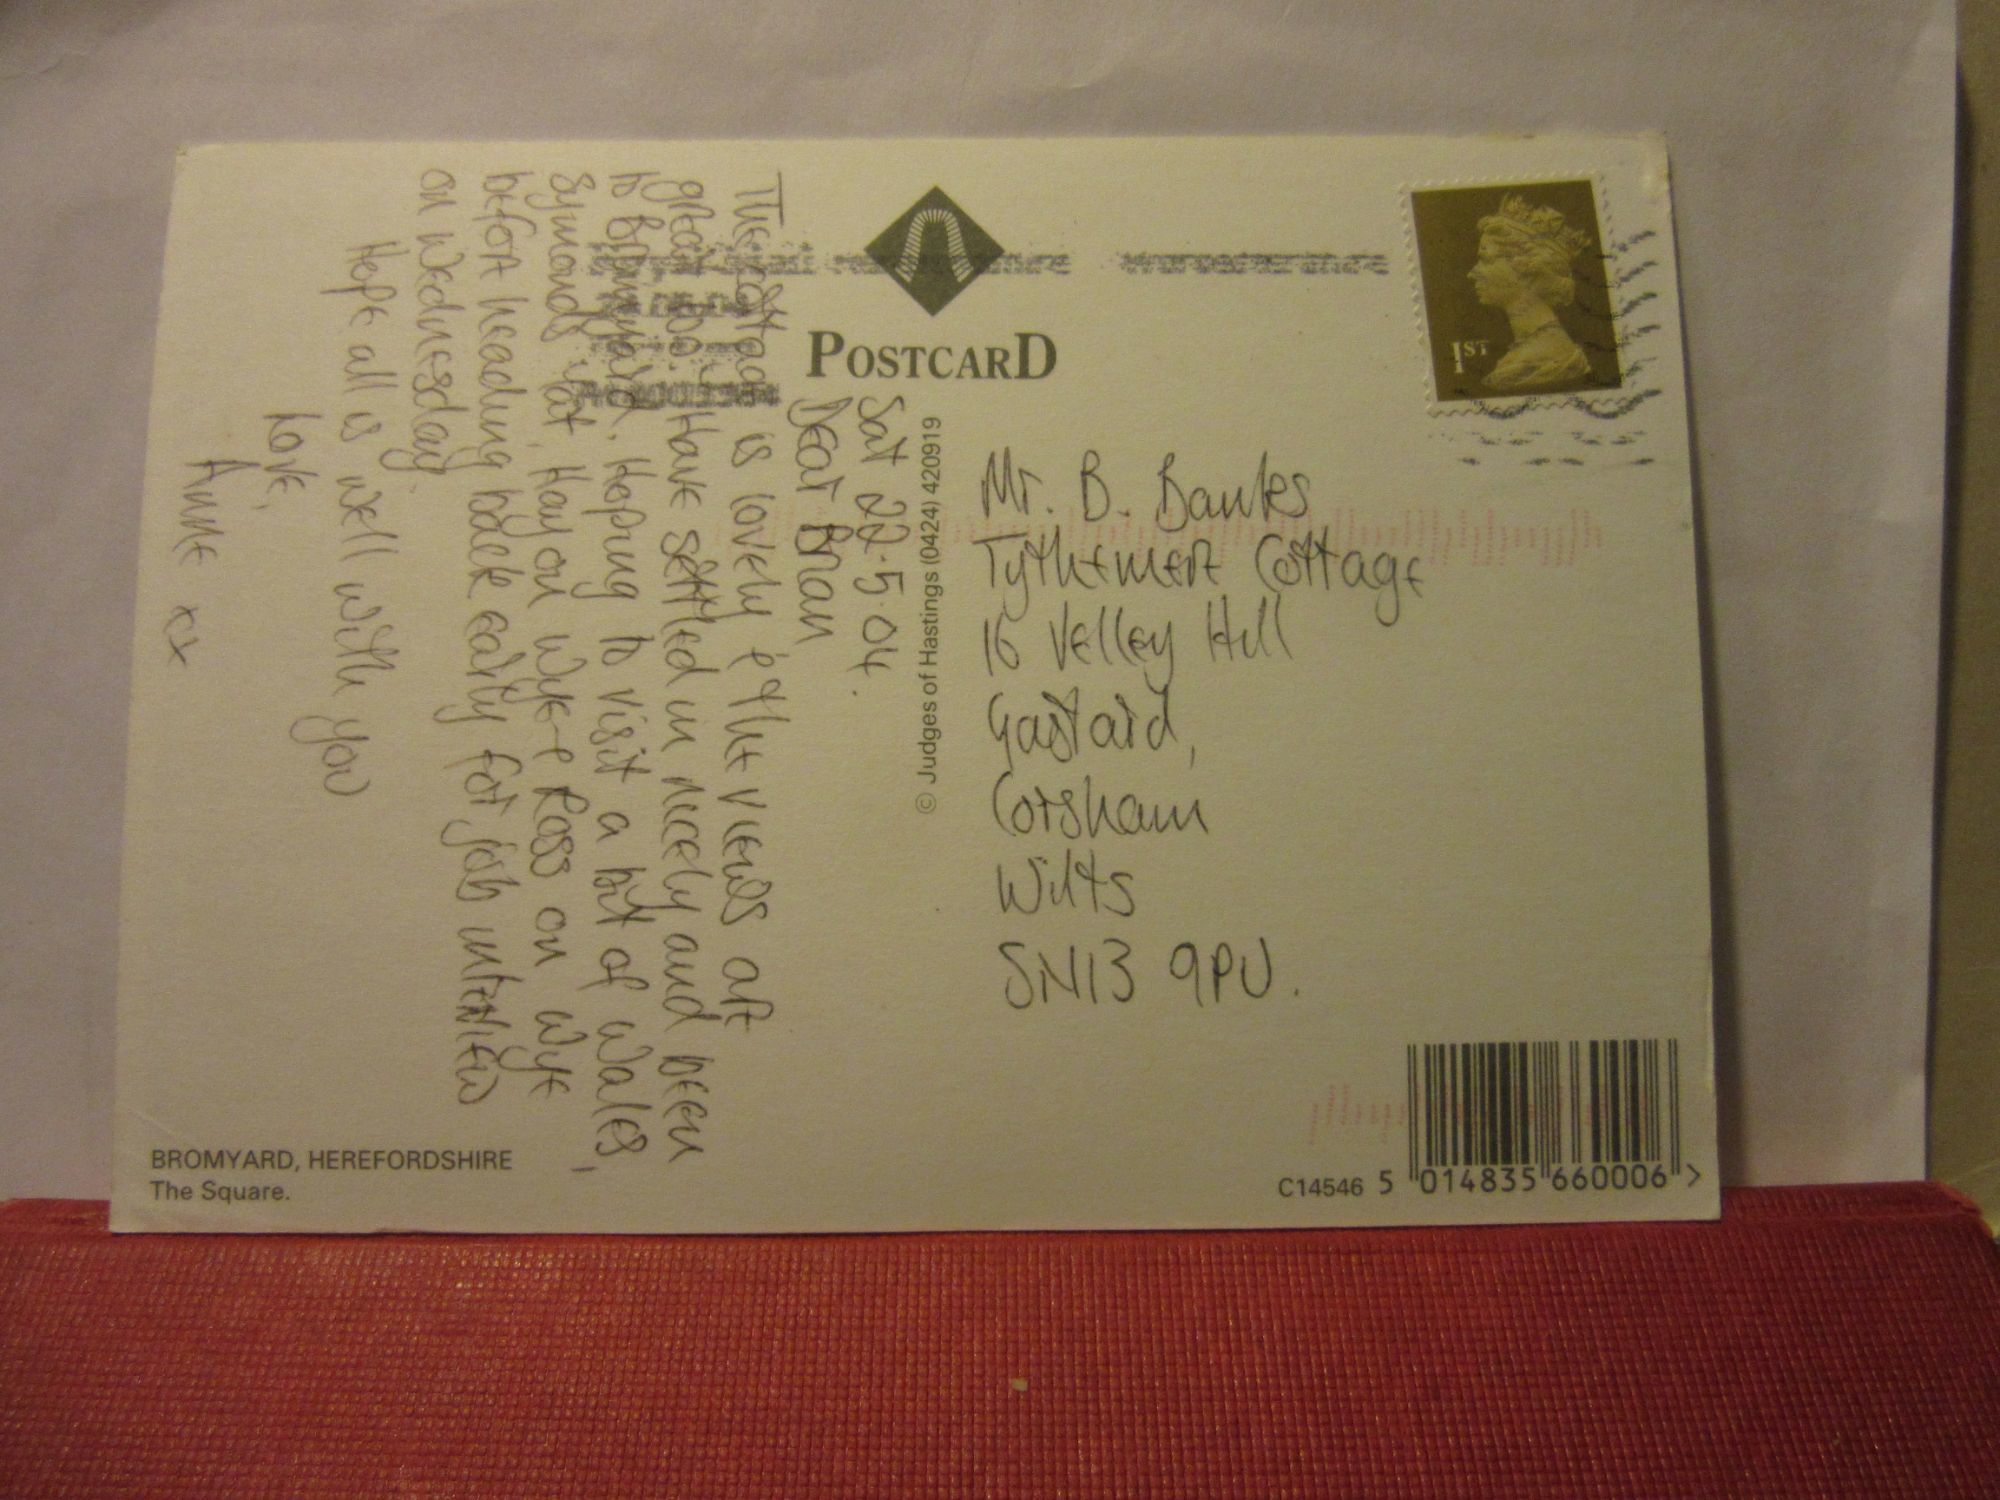 POSTCARD
1ST
© Judges of Hastings (0424) 420919
Sat 22.5.04.
Dear Brian
The cottage is lovely & the views are
great too. Have settled in nicely and been
to Bromyard. Hoping to visit a bit of Wales,
Symonds Yat, Hay on Wye & Ross on Wye
before heading back early for job interview
on Wednesday.
Hope all is well with you
Love,
Anne xx
Mr. B. Banks
Tythemere Cottage
16 Velley Hill
Gastard,
Corsham
Wilts
SN13 9PU.
BROMYARD, HEREFORDSHIRE
The Square.
C14546 5 014835 660006 >